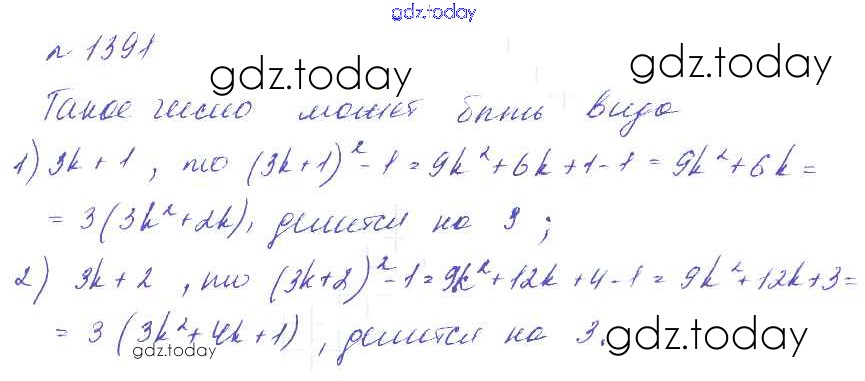 gdz.today
№ 1391
gdz.today gdz.today
Такое число может быть вида
1) 3k + 1 , то (3k+1)² - 1 = 9k² + 6k + 1 - 1 = 9k² + 6k =
= 3 (3k² + 2k), делится на 3 ;
2) 3k + 2 , то (3k+2)² - 1 = 9k² + 12k + 4 - 1 = 9k² + 12k + 3 =
= 3 (3k² + 4k + 1) , делится на 3.
gdz.today gdz.today